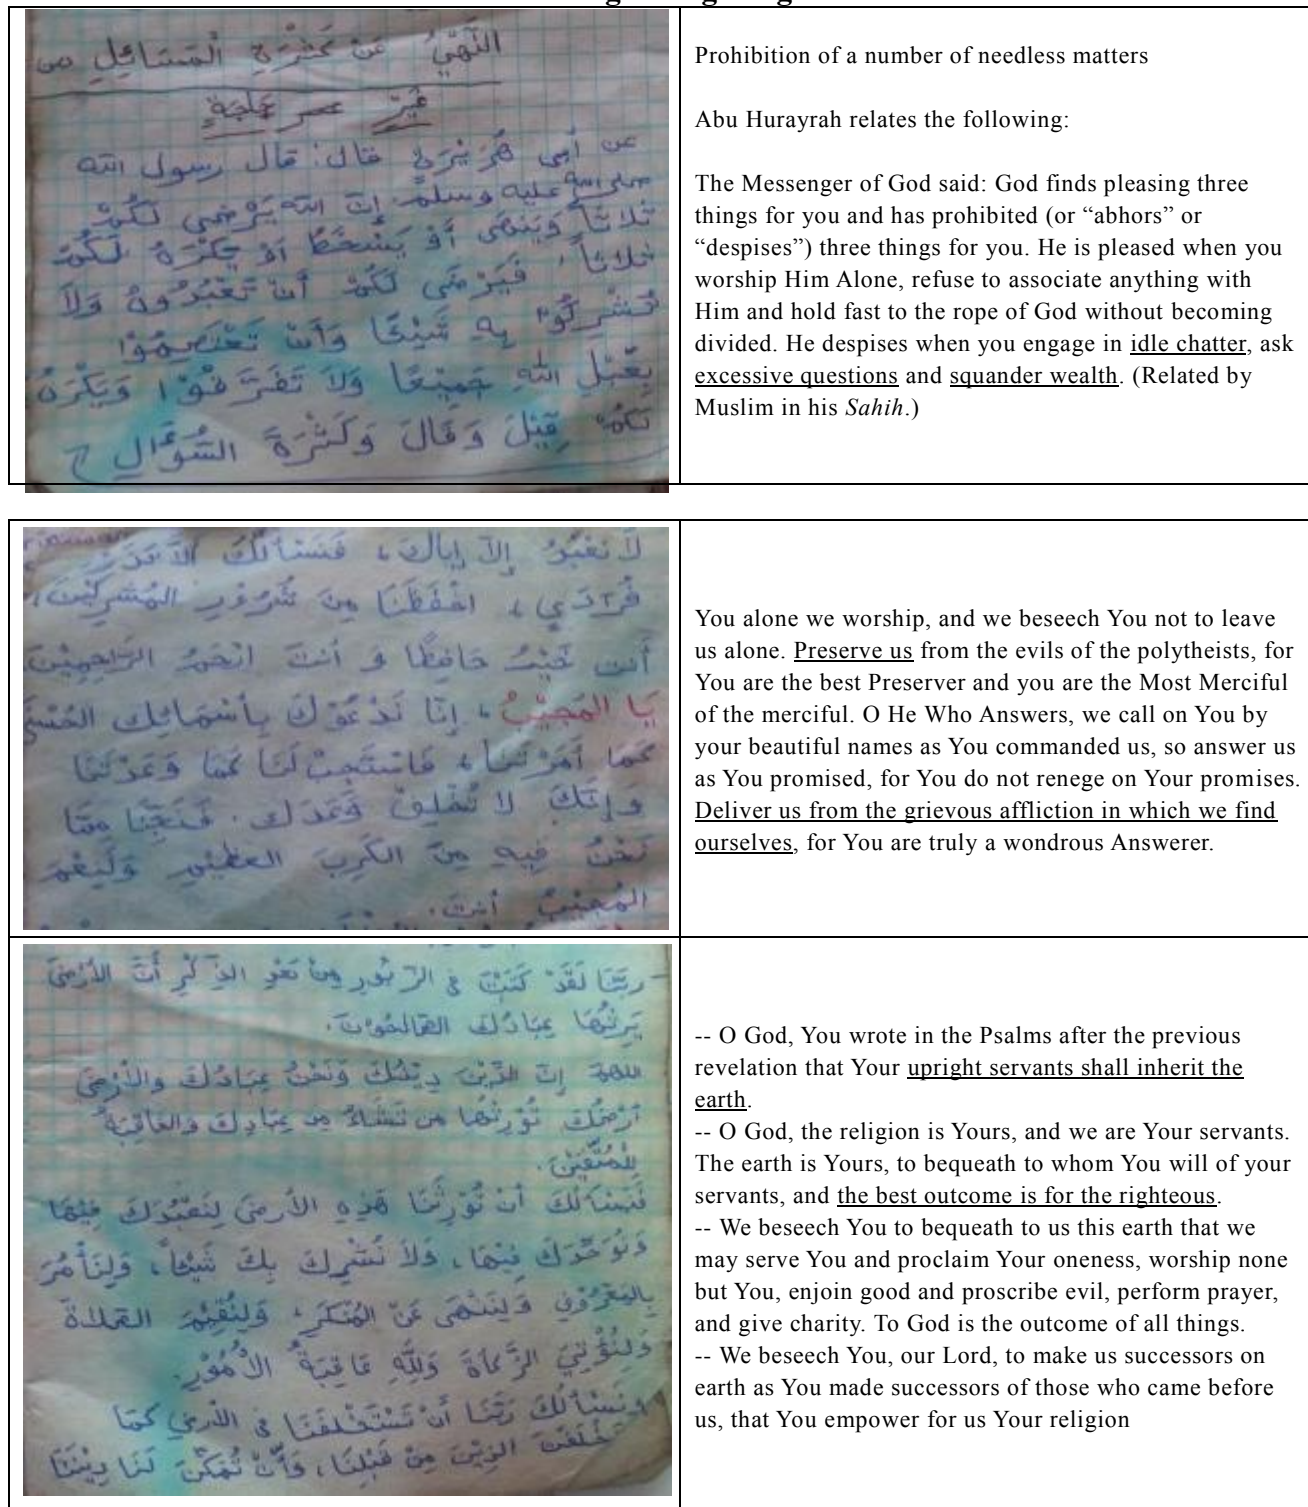 النَّهْيُ عَنْ كَثْرَةِ الْمَسَائِلِ من
غَيْرِ
عن أبي هُرَيْرَةَ قال: قال رسول الله
صلى الله عليه وسلم إنَّ اللهَ يَرْضَى لَكُمْ
ثلاثاً وَيَنْهَى أَوْ يَسْخَطُ أَوْ يَكْرَهُ لَكُمْ
ثلاثاً، فَيَرْضَى لَكُمْ أَنْ تَعْبُدُوهُ وَلاَ
تُشْرِكُوا بِهِ شَيْئًا وَأَنْ تَعْتَصِمُوْا
بِحَبْلِ اللهِ جَمِيْعًا وَلاَ تَفَرَّقُوْا وَيَكْرَهُ
لَكُمْ قِيْلَ وَقَالَ وَكَثْرَةَ السُّؤَالِ
Prohibition of a number of needless matters
Abu Hurayrah relates the following:
The Messenger of God said: God finds pleasing three
things for you and has prohibited (or “abhors” or
“despises”) three things for you. He is pleased when you
worship Him Alone, refuse to associate anything with
Him and hold fast to the rope of God without becoming
divided. He despises when you engage in idle chatter, ask
excessive questions and squander wealth. (Related by
Muslim in his Sahih.)
لاَ نَعْبُدُ إِلاَّ إِيَاكَ، فَنَسْأَلُكَ
احْفَظْنَا مِنَ شُرُوْرِ المُشْرِكِيْنَ،
أنت خَيْرُ حَافِظًا وَ أنتَ ارْحَمُ الرَّاحِمِيْنَ
يَا المُجِيْبُ، إِنَّا نَدْعُوْكَ بِأَسْمَائِكَ الحُسْنَى
كَمَا أَمَرْتَنَا، فَاسْتَجِبْ لَنَا كَمَا وَعَدْتَنَا
وَإِنَّكَ لاَ تُخْلِفُ وَعَدَكَ. فَنَجِّنَا مِمَّا
نَحْنُ فِيهِ مِنَ الكَرِبَ العَظِيْمِ وَلَنِعْمَ
المُجِيْبُ أنتَ.
You alone we worship, and we beseech You not to leave
us alone. Preserve us from the evils of the polytheists, for
You are the best Preserver and you are the Most Merciful
of the merciful. O He Who Answers, we call on You by
your beautiful names as You commanded us, so answer us
as You promised, for You do not renege on Your promises.
Deliver us from the grievous affliction in which we find
ourselves, for You are truly a wondrous Answerer.
- ربَّنَا لَقَدْ كَتَبْتَ في الزَّبُورِ مِنْ بَعْدِ الذِّكْرِ أَنَّ الأَرْضَ
يَرِثُهَا عِبَادُكَ الصَّالِحُوْنَ.
اللهمَّ إِنَّ الدِّيْنَ دِيْنُكَ وَنَحْنُ عِبَادُكَ والأَرْضَ
أرْضُكَ تُوْرِثُهَا مَن تَشَاءُ مِن عِبَادِكَ والعَاقِبَةُ
لِلْمُتَّقِيْنَ.
فَنَسْأَلُكَ أنْ تُوْرِثَنَا هَذِهِ الأَرضَ لِنَعْبُدَكَ فِيْهَا
وَنُوَحِّدَكَ فِيْهَا، وَلاَ نُشْرِكَ بِكَ شَيْئاً، وَلِنَأْمُرَ
بِالمَعْرُوْفِ وَلِنَنْهَى عَنْ المُنْكَرِ، وَلِنُقِيْمَ الصَّلاَةَ
وَلِنُؤْتِيَ الزَّكَاةَ وَلِلَّهِ عَاقِبَةُ الأُمُوْرِ.
وَنَسْأَلُكَ رَبَّنَا أنْ تَسْتَخْلِفَنَا في الأرضِ كَمَا
الذِيْنَ مِنْ قَبْلِنَا، وَأَنْ تُمَكِّنَ لَنَا دِيْنَنَا
-- O God, You wrote in the Psalms after the previous
revelation that Your upright servants shall inherit the
earth.
-- O God, the religion is Yours, and we are Your servants.
The earth is Yours, to bequeath to whom You will of your
servants, and the best outcome is for the righteous.
-- We beseech You to bequeath to us this earth that we
may serve You and proclaim Your oneness, worship none
but You, enjoin good and proscribe evil, perform prayer,
and give charity. To God is the outcome of all things.
-- We beseech You, our Lord, to make us successors on
earth as You made successors of those who came before
us, that You empower for us Your religion